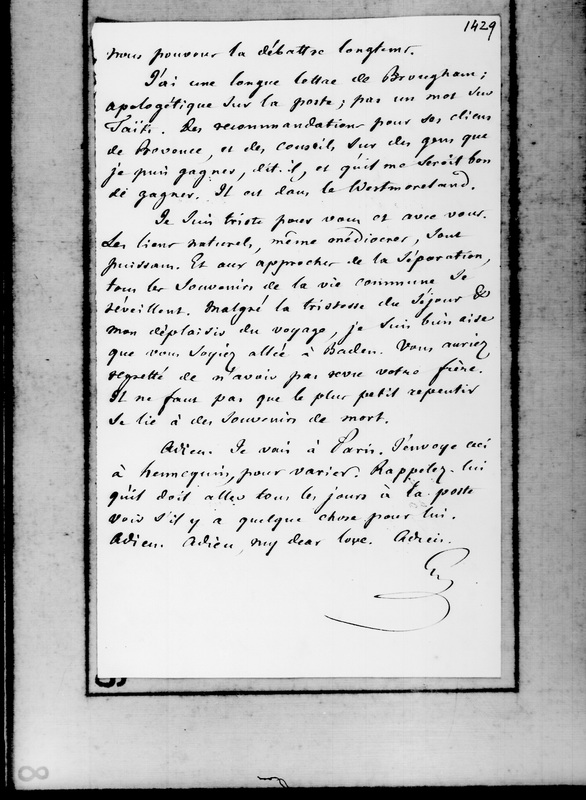 1429
nous pouvons la débattre longtems.
J'ai une longue lettre de Brougham ;
apologétique sur la poste ; pas un mot sur
Taïti. Des recommandations pour ses cliens
de Provence, et des conseils sur des gens que
je puis gagner, dit-il, et qu'il me seroit bon
de gagner. Il est dans le Westmoreland.
Je suis triste pour vous et avec vous.
Les liens naturels, même médiocres, sont
puissans. Et aux approches de la séparation,
tous les souvenirs de la vie commune se
réveillent. Malgré la tristesse du séjour &
mon déplaisir du voyage, je suis bien aise
que vous soyiez allée à Baden. Vous auriez
regretté de n'avoir pas revu votre frère.
Il ne faut pas que le plus petit repentir
se lie à des souvenirs de mort.
Adieu. Je vais à Paris. J'envoye ceci
à hennequin, pour varier. Rappelez-lui
qu'il doit aller tous les jours à la poste
voir s'il y a quelque chose pour lui.
Adieu. Adieu, my dear love. Adieu.
G